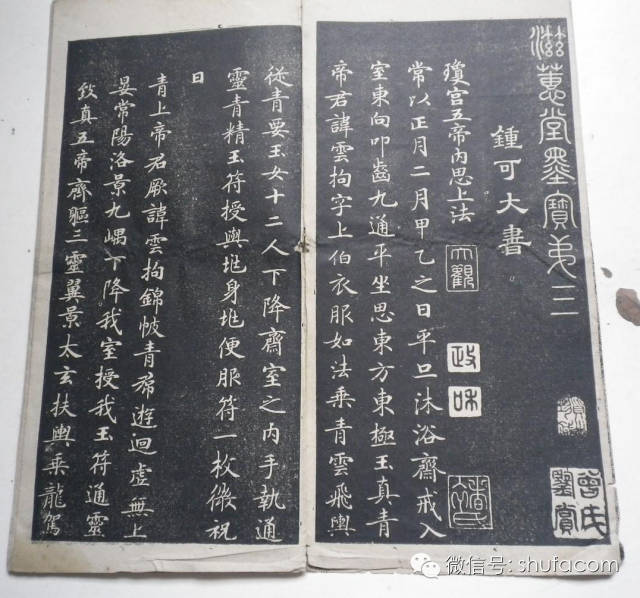 滋蕙堂墨寶第三
曾氏
鑒賞
鍾可大書
瓊宫五帝内思上法
大觀
政和
常以正月二月甲乙之日平旦沐浴齋戒入
室東向叩齒九通平坐思東方東極玉真青
帝君諱雲拘字上伯衣服如法乘青雲飛輿
從青要玉女十二人下降齋室之内手執通
靈青精玉符授與兆身兆便服符一枚微祝
曰
青上帝君厥諱雲拘錦帔青帬遊迴虚無上
晏常陽洛景九嵎下降我室授我玉符通靈
致真五帝齊軀三靈翼景太玄扶輿乘龍駕
微信号: shufacom